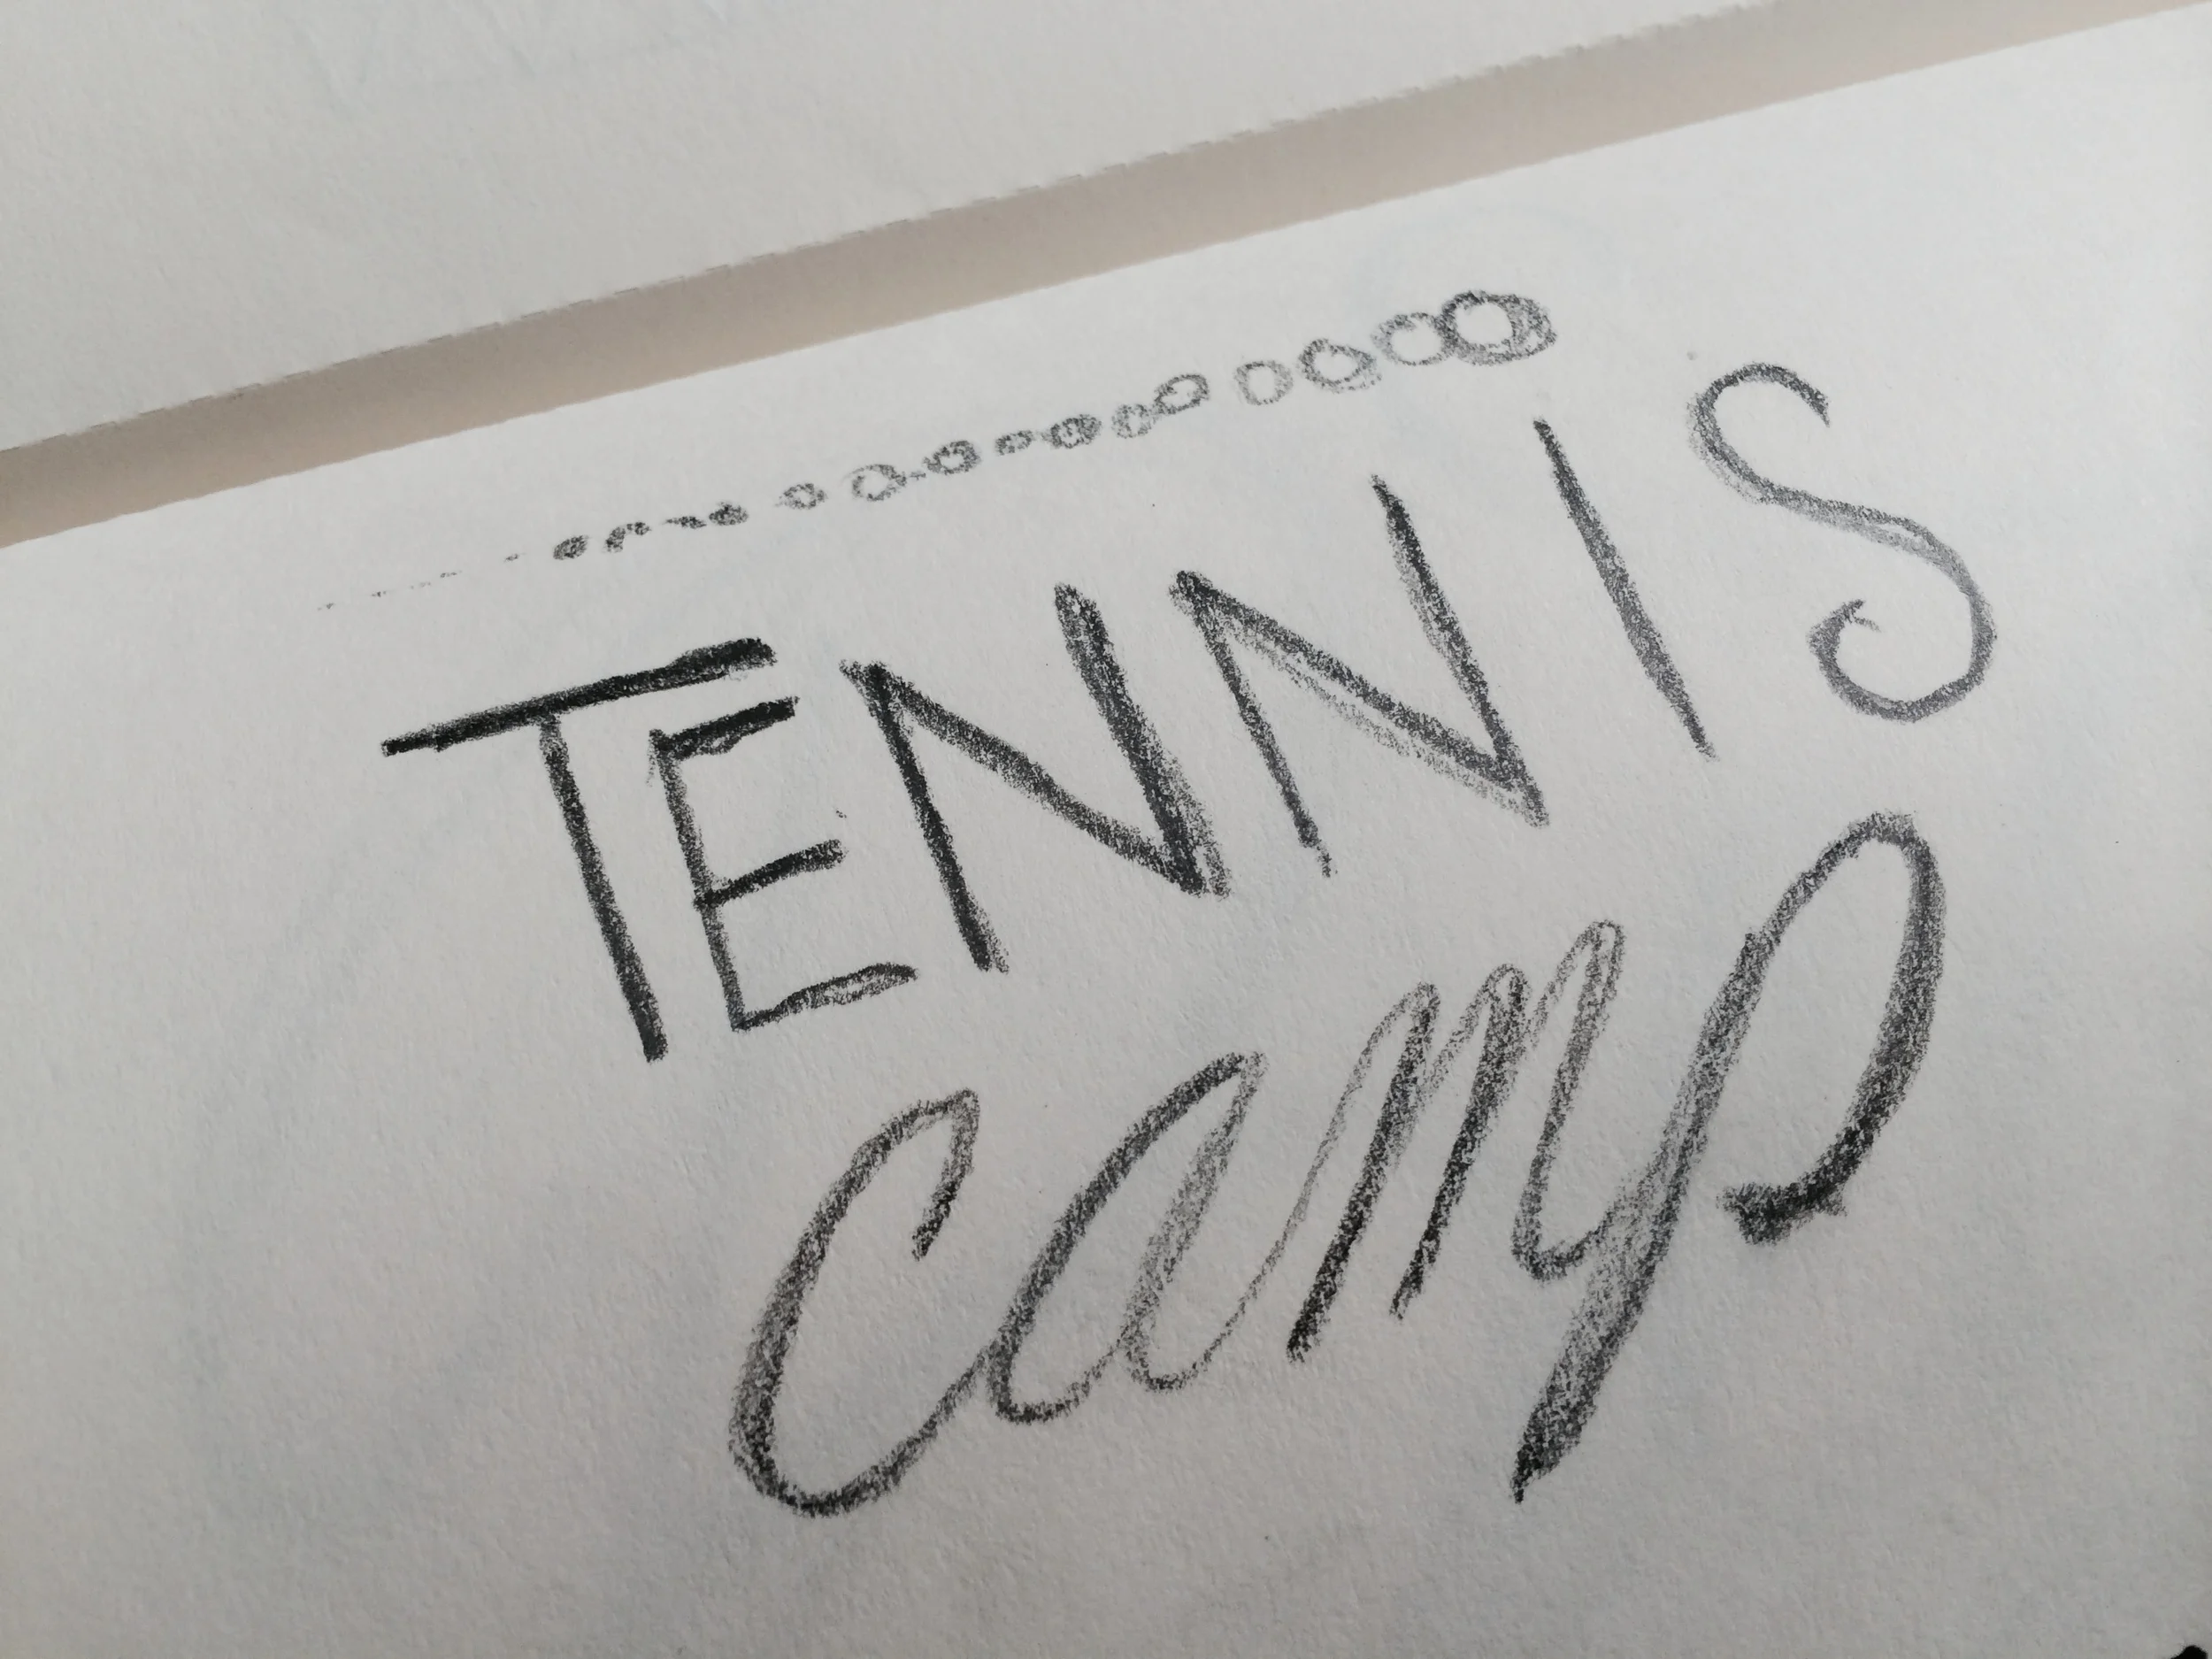 TENNIS
camp